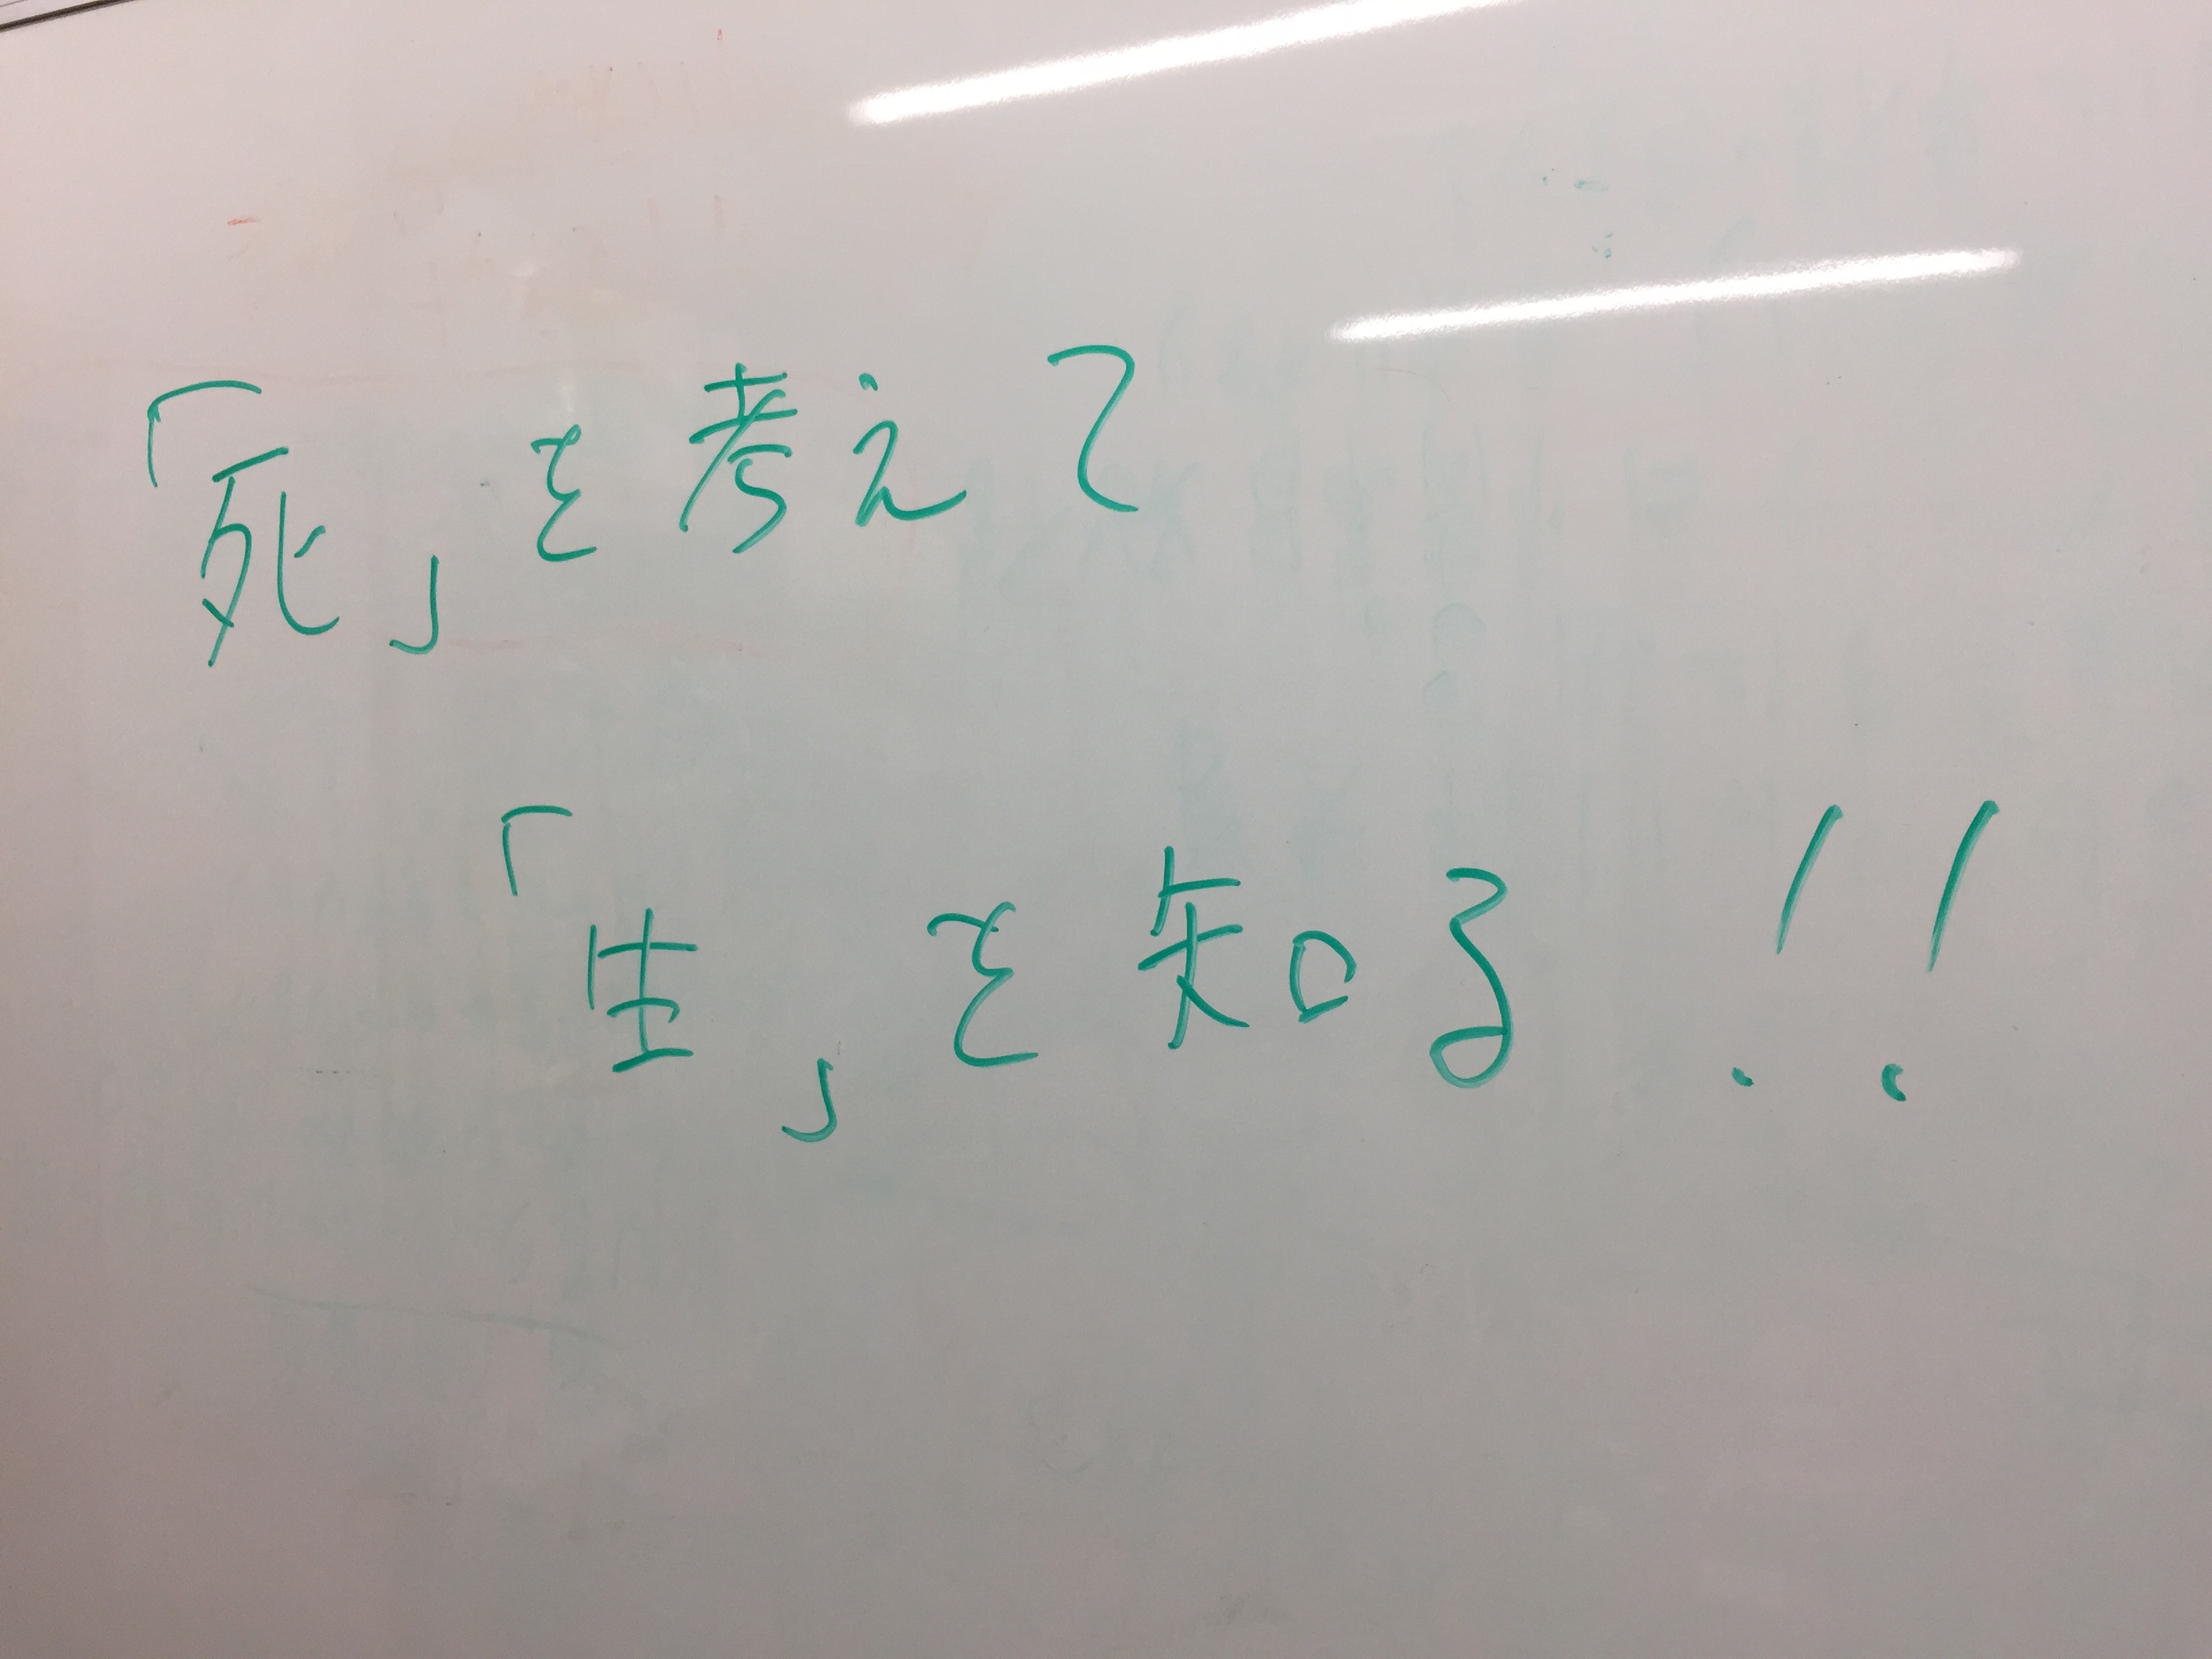 「死」を考えて
「生」を知る!!